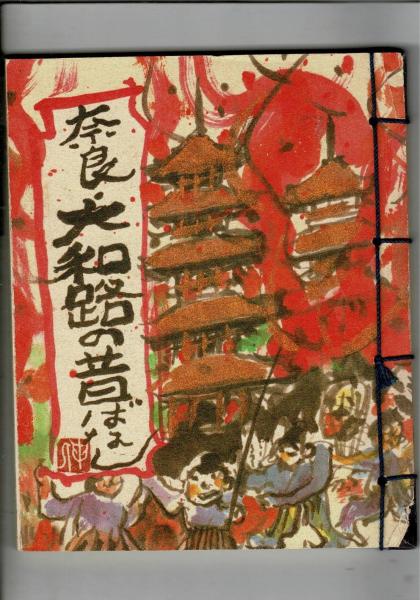 奈良大和路の昔ばなし